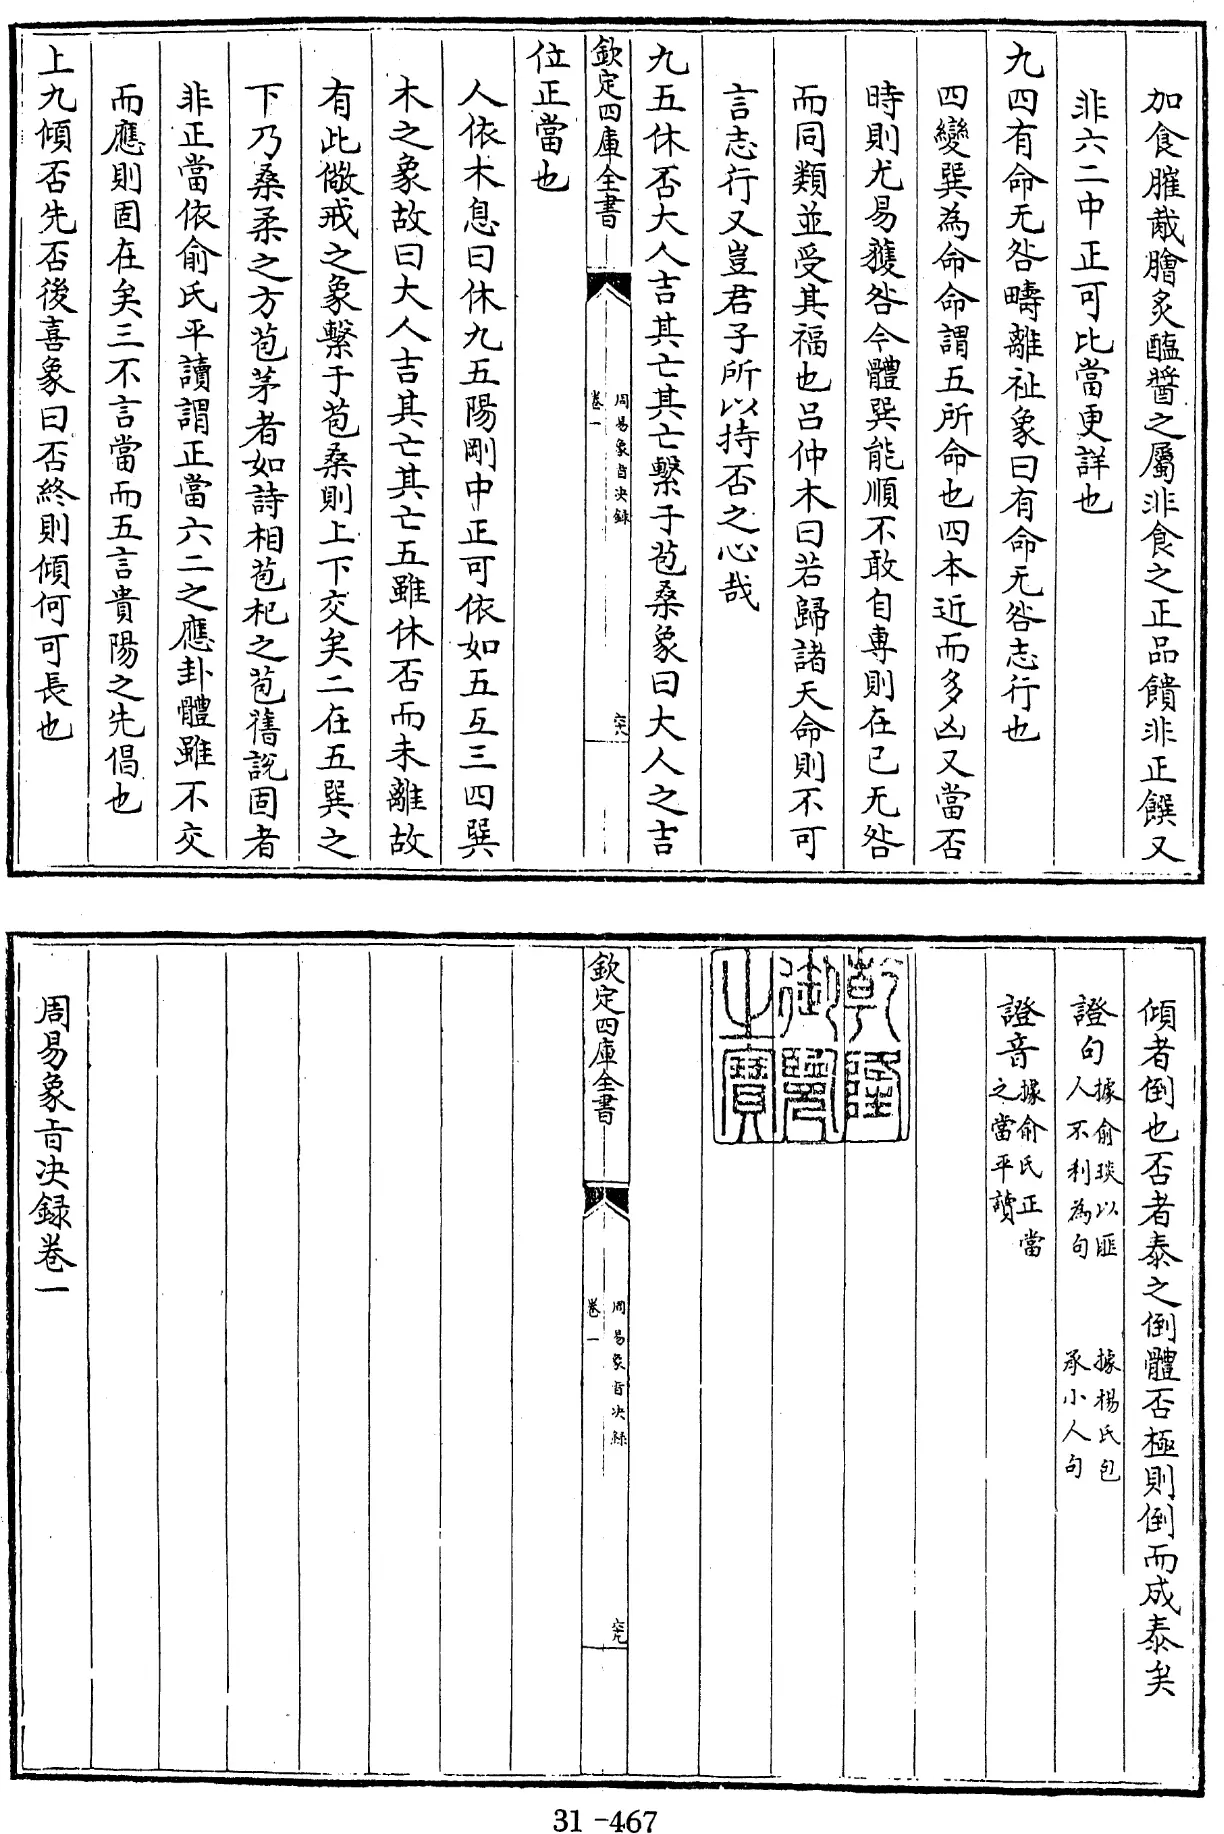 加食䐹胾膾炙醢醬之屬非食之正品饋非正饌又
非六二中正可比當更詳也
九四有命无咎疇離祉象曰有命无咎志行也
四變巽為命命謂五所命也四本近而多凶又當否
時則尤易獲咎今體巽能順不敢自專則在己无咎
而同類並受其福也呂仲木曰若歸諸天命則不可
言志行又豈君子所以持否之心哉
九五休否大人吉其亡其亡繫于苞桑象曰大人之吉
欽定四庫全書
周易象旨決錄
卷一
六八
位正當也
人依木息曰休九五陽剛中正可依如五互三四巽
木之象故曰大人吉其亡其亡五雖休否而未離故
有此儆戒之象繫于苞桑則上下交矣二在五巽之
下乃桑柔之方苞茅者如詩相苞杞之苞舊說固者
非正當依俞氏平讀謂正當六二之應卦體雖不交
而應則固在矣三不言當而五言貴陽之先倡也
上九傾否先否後喜象曰否終則傾何可長也
傾者倒也否者泰之倒體否極則倒而成泰矣
證句據俞琰以匪人不利為句 據楊氏包承小人句
證音據俞氏正當之當平讀
乾隆御覽之寶
欽定四庫全書
周易象旨決錄
卷一
六九
周易象旨決錄卷一
31-467